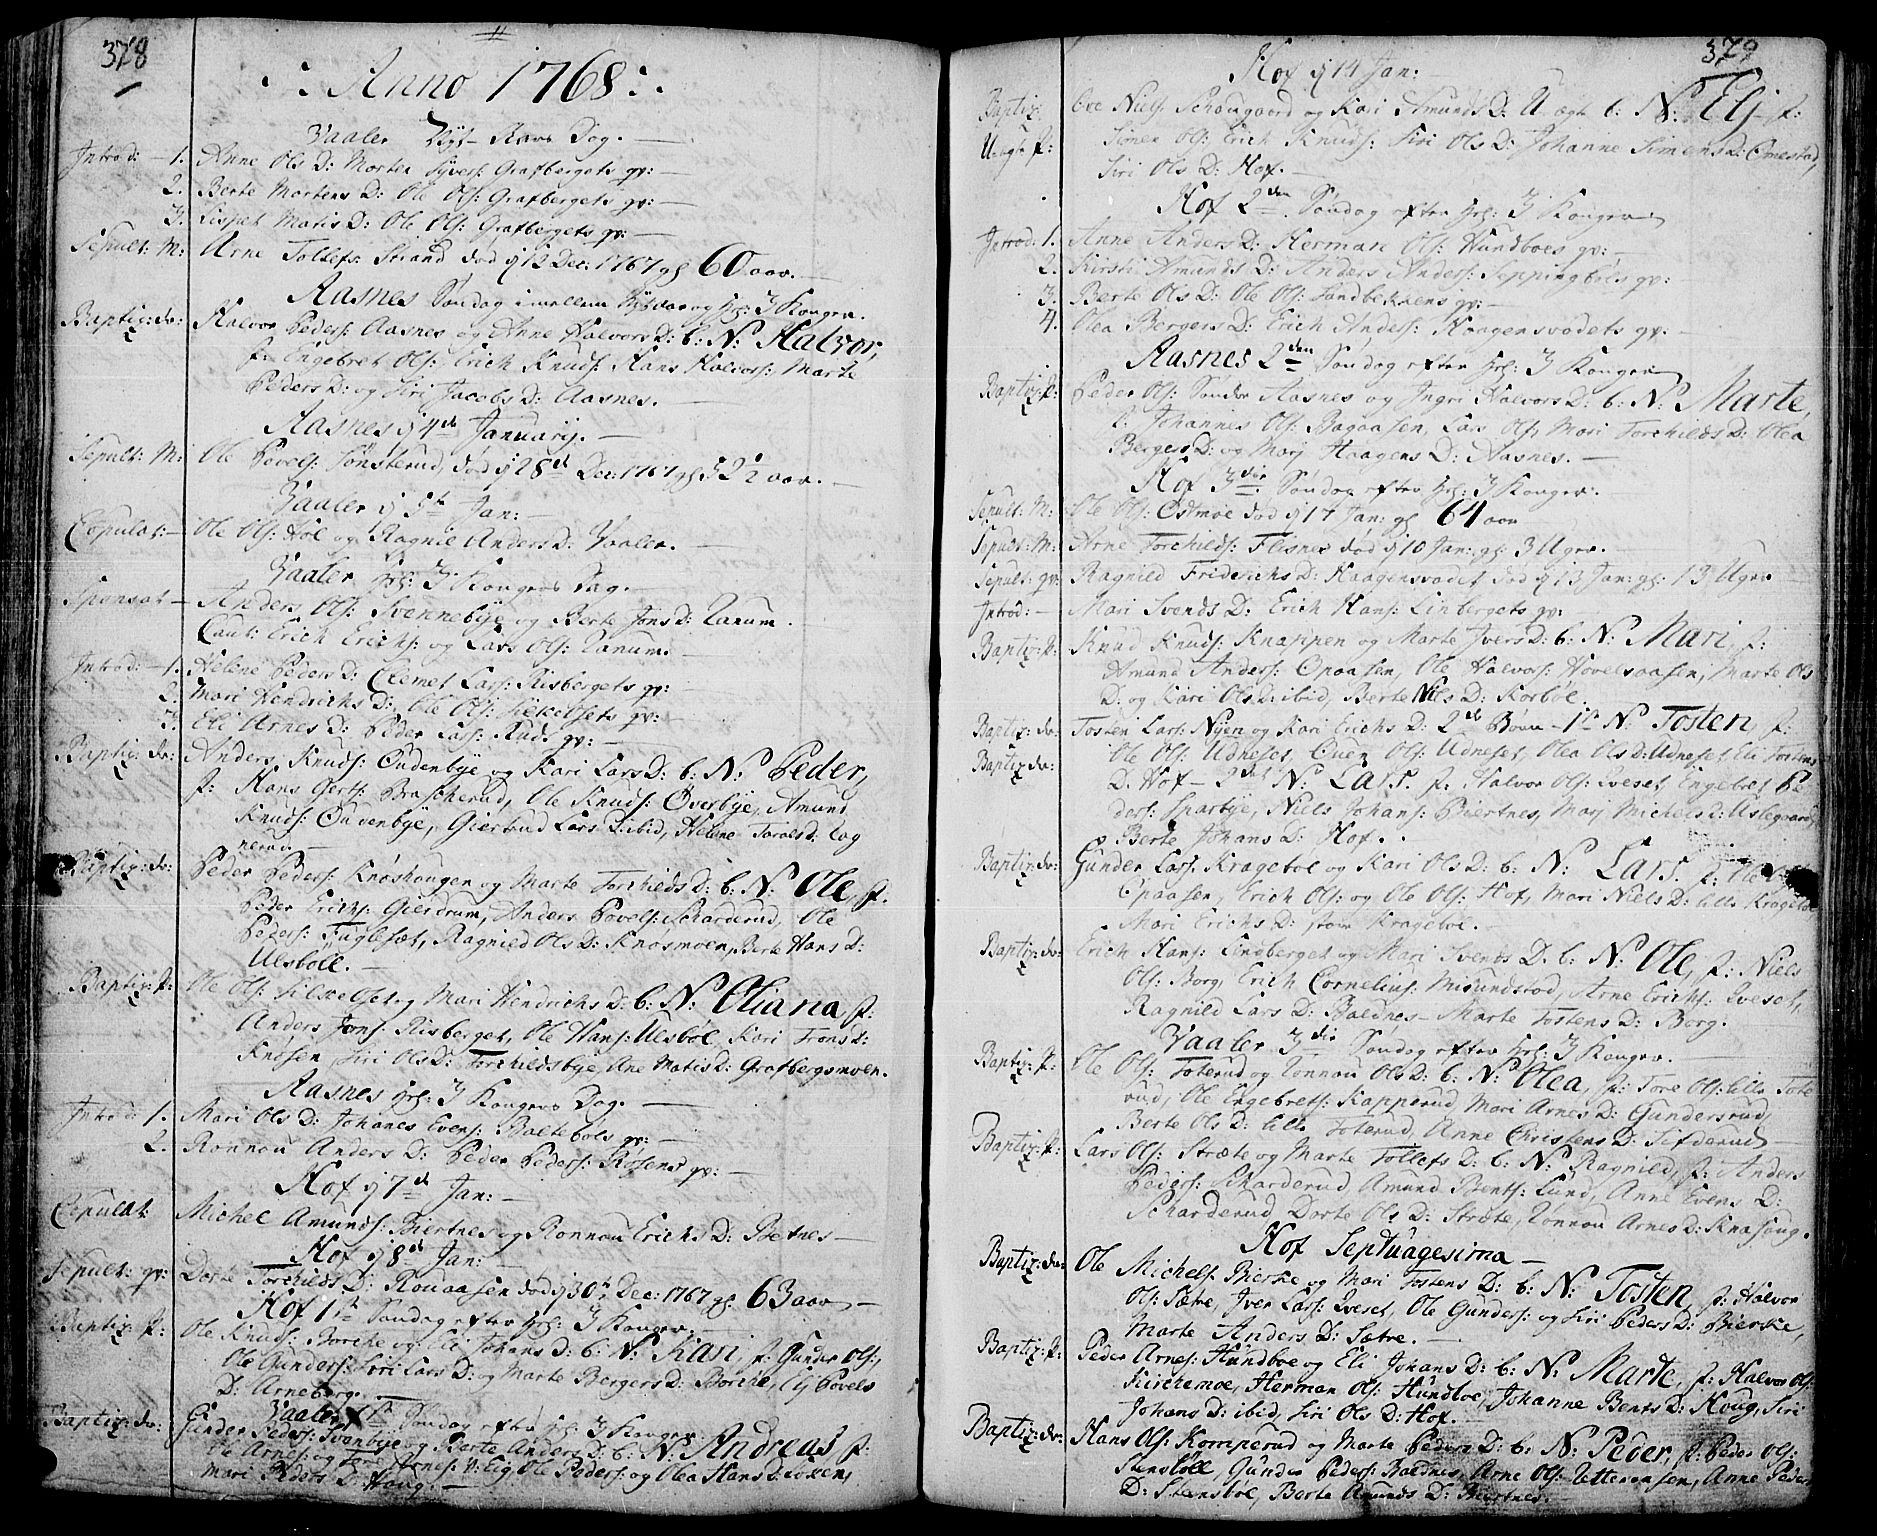 378
Anno 1768
Vaaler Nyt-Aars Dag.
Introd: 1. Anne Ols D: Morten Syvers: Grafbergets qv:
2. Berte Mortens D: Ole Ols: Grafbergets qv:
3. Lispet Matis D: Ole Ols: Grafbergets qv:
Sepult: M: Arne Tollefs: Strand død d 12 Dec: 1767 gl 60 aar.
Aasnes Søndag imellem Nytaar og hel: 3 Konger.
Baptiz: dr: Halvor Peders: Aasnes og Anne Halvors D: b: N: Halvor,
f: Engebret Ols: Erich Knuds: Hans Halvors: Marte
Peders D: og Siri Jacobs D: Aasnes.
Aasnes d 4de Januarij.
Sepult: M: Ole Povels: Sønsterud, død d 28de Dec: 1767 gl 52½ aar.
Vaaler d 5te Jan:
Copulat: Ole Ols: Hol og Ragnil Anders D: Vaaler.
Vaaler hel: 3 Kongers Dag.
Sponsat Anders Ols: Svennebye og Berte Jons D: Tanum.
Caut: Erich Erichs: og Lars Ols: Tanum.
Introd: 1. Helene Peders D: Clemet Lars: Risbergets qv:
2. Mari Hendrichs D: Ole Ols: Silkesets qv:
3. Eli Arnes D: Peder Lars: Ruds qv:
Baptiz: dr: Anders Knuds: Oudenbye og Kari Lars D: b: N: Peder,
f: Hans Gerts: Brascherud, Ole Knuds: Overbye, Amund
Knuds: Oudenbye, Giertrud Lars D: ibid, Helene Torals D: Log
nerud
Baptiz: dr: Peder Peders: Knøshougen og Marte Torchilds D: b: N: Ole, f:
Peder Erichs: Gierdrum, Anders Povels: Scharderud, Ole
Peders: Fuglesæt, Ragnild Ols D: Knosmoen, Berte Hans D:
Ulsboll.
Baptiz: p: Ole Ols: Silkeset og Mari Hendrichs D: b: N: Oliana, f:
Anders Jons: Risberget, Ole Hans: Ulsbøl, Kari Trons D:
Knosen, Siri Ols D: Torchildsbye, Ane Matis D: Grafbergsmoen.
Aasnes hel: 3 Kongers Dag.
Introd: 1. Mari Ols D: Johanes Evens: Baltebols qv:
2. Ronnou Anders D: Peder Peders: Røsens qv:
Hof d 7de Jan:
Copulat: Michel Amunds: Biertnes og Ronnou Erichs D: Betnes
Hof d 8de Jan:
Sepult: qv: Dorte Torchilds D: Rouaasen død d 30te Dec: 1767 gl: 63 aar
Hof 1ste Søndag efter hel: 3 Konger.
Baptiz: p: Ole Knuds: Borche og Eli Johans D: b: N: Kari, f: Gunder Ols:
Ole Gunders: Siri Lars D: og Marte Bergers D: Borche, Elj Povels
D: Arneberg.
Vaaler 1ste Søndag efter hel: 3 Konger.
Baptiz: dr: Gunder Peders: Svenbye og Berte Anders D: b: N: Andreas f:
Ole Peders: og Olea Hans D:
Mari Peders D: Houg.
379
Hof d 14 Jan:
Baptiz: Ove Niels: Schougaard og Kari Amunds D: Uægte b: N: Elj f:
Uægte p: Simen Ols: Erich Knuds: Siri Ols D: Johanne Simens D: Omestad,
Siri Ols D: Hof.
Hof 2den Søndag efter hel: 3 Konger
Introd: 1. Anne Anders D: Herman Ols: Hundboes qv:
2. Kirsti Amunds D: Anders Anders: Seppingbols qv:
3. Berte Ols D: Ole Ols: Sandbekkens qv:
4. Olea Bergers D: Erich Anders: Haagensvodets qv:
Aasnes 2den Søndag efter hel: 3 Konger
Baptiz: p: Peder Ols: Sønder Aasnes og Ingri Halvors D: b: N: Marte,
f: Johannes Ols: Bagaasen, Lars Ols, Mari Torchilds D: Olea
Bergers D: og Marj Haagens D: Aasnes.
Hof 3die Søndag efter hel: 3 Konger.
Sepult: M: Ole Ols: Ostmoe død d 17 Jan: gl 64 aar
Sepult: M: Arne Torchilds: Flisnes død d 10 Jan: gl: 3 Uger.
Sepult: qv: Ragnild Friderichs D: Haagensvodet død d 13 Jan: gl: 13 Uger
Introd: Mari Svends D: Erich Hans: Linbergets qv:
Baptiz: p: Knud Knuds: Knappen og Marte Ivers D: b: N: Mari, f:
Amund Anders: Opaasen, Ole Halvors: Hovelsaasen, Marte Ols
D: og Kari Ols D: ibid, Berte Niels D: Korbøl.
Baptiz: dr: Tosten Lars: Nyen og Kari Erichs D: 2de Børn 1te N: Tosten, f:
Ole Ols: Udneset, Even Ols: Udneset, Olea Ols D: Udneset, Eli Tostens
Baptiz dr: D: Hof 2det N: Lars, f: Halvor Ols: Qveset, Engebret Pe
ders: Sparbye, Niels Johans: Biertnes, Marj Michels D: Ulsgaard,
Berte Johans D: Hof.
Baptiz: dr: Gunder Lars: Kragebol og Kari Ols D: b: N: Lars, f: Ole
Opaasen, Erich Ols: og Ole Ols: Hof, Mari Niels D: lille Kragebol
Mari Erichs D: store Kragebol.
Baptiz: dr: Erich Hans: Lindberget og Mari Svends D. b: N: Ole, f: Niels
Ols: Borg, Erich Cornelius: Misundsrod, Arne Erichs: Qveset,
Ragnild Lars D: Baldnes Marte Tostens D: Borg.
Vaaler 3die Søndag efter hel: 3 Konger.
Baptiz: p: Ole Ols: Toterud og Ronnau Ols D: b: N: Olea, f: Tore Ols: lille Tote
rud, Ole Engebrets: Kapperud, Mari Arnes D: Gundersrud,
Berte Ols D: lille Toterud, Anne Christens D: Sifderud
Baptiz: p: Lars Ols: Stræte og Marte Tollefs D: b: N: Ragnild, f: Anders
Peders: Scharderud, Amund Bents: Lund, Anne Evens D:
Scharderud, Dorte Ols D: Stræte, Ronnou Arnes D: Knasoug.
Hof Septuagesima
Baptiz: dr: Ole Michels: Bierke og Mari Tostens D: b: N: Tosten, f: Halvor
Ols: Sætre, Iver Lars: Qveset, Ole Gunders: og Siri Peders D: Bierke,
Marte Anders D: Sætre.
Baptiz: p: Peder Arnes: Hundboe og Eli Johans D: b: N: Marte, f: Halvor Ols:
Kirchemoe, Herman Ols: Hundboe, Johanne Bents D: Houg, Siri
Johans D: ibid, Siri Ols D: Hof.
Baptiz: dr: Hans Ols: Komperud og Marte Peders D: b: N: Peder, f: Peder Ols:
Stensboll, Gunder Peders: Baldnes, Arne Ols: Utteraasen, Anne Peders
D: Stensbol, Berte Amunds D: Biertnes.